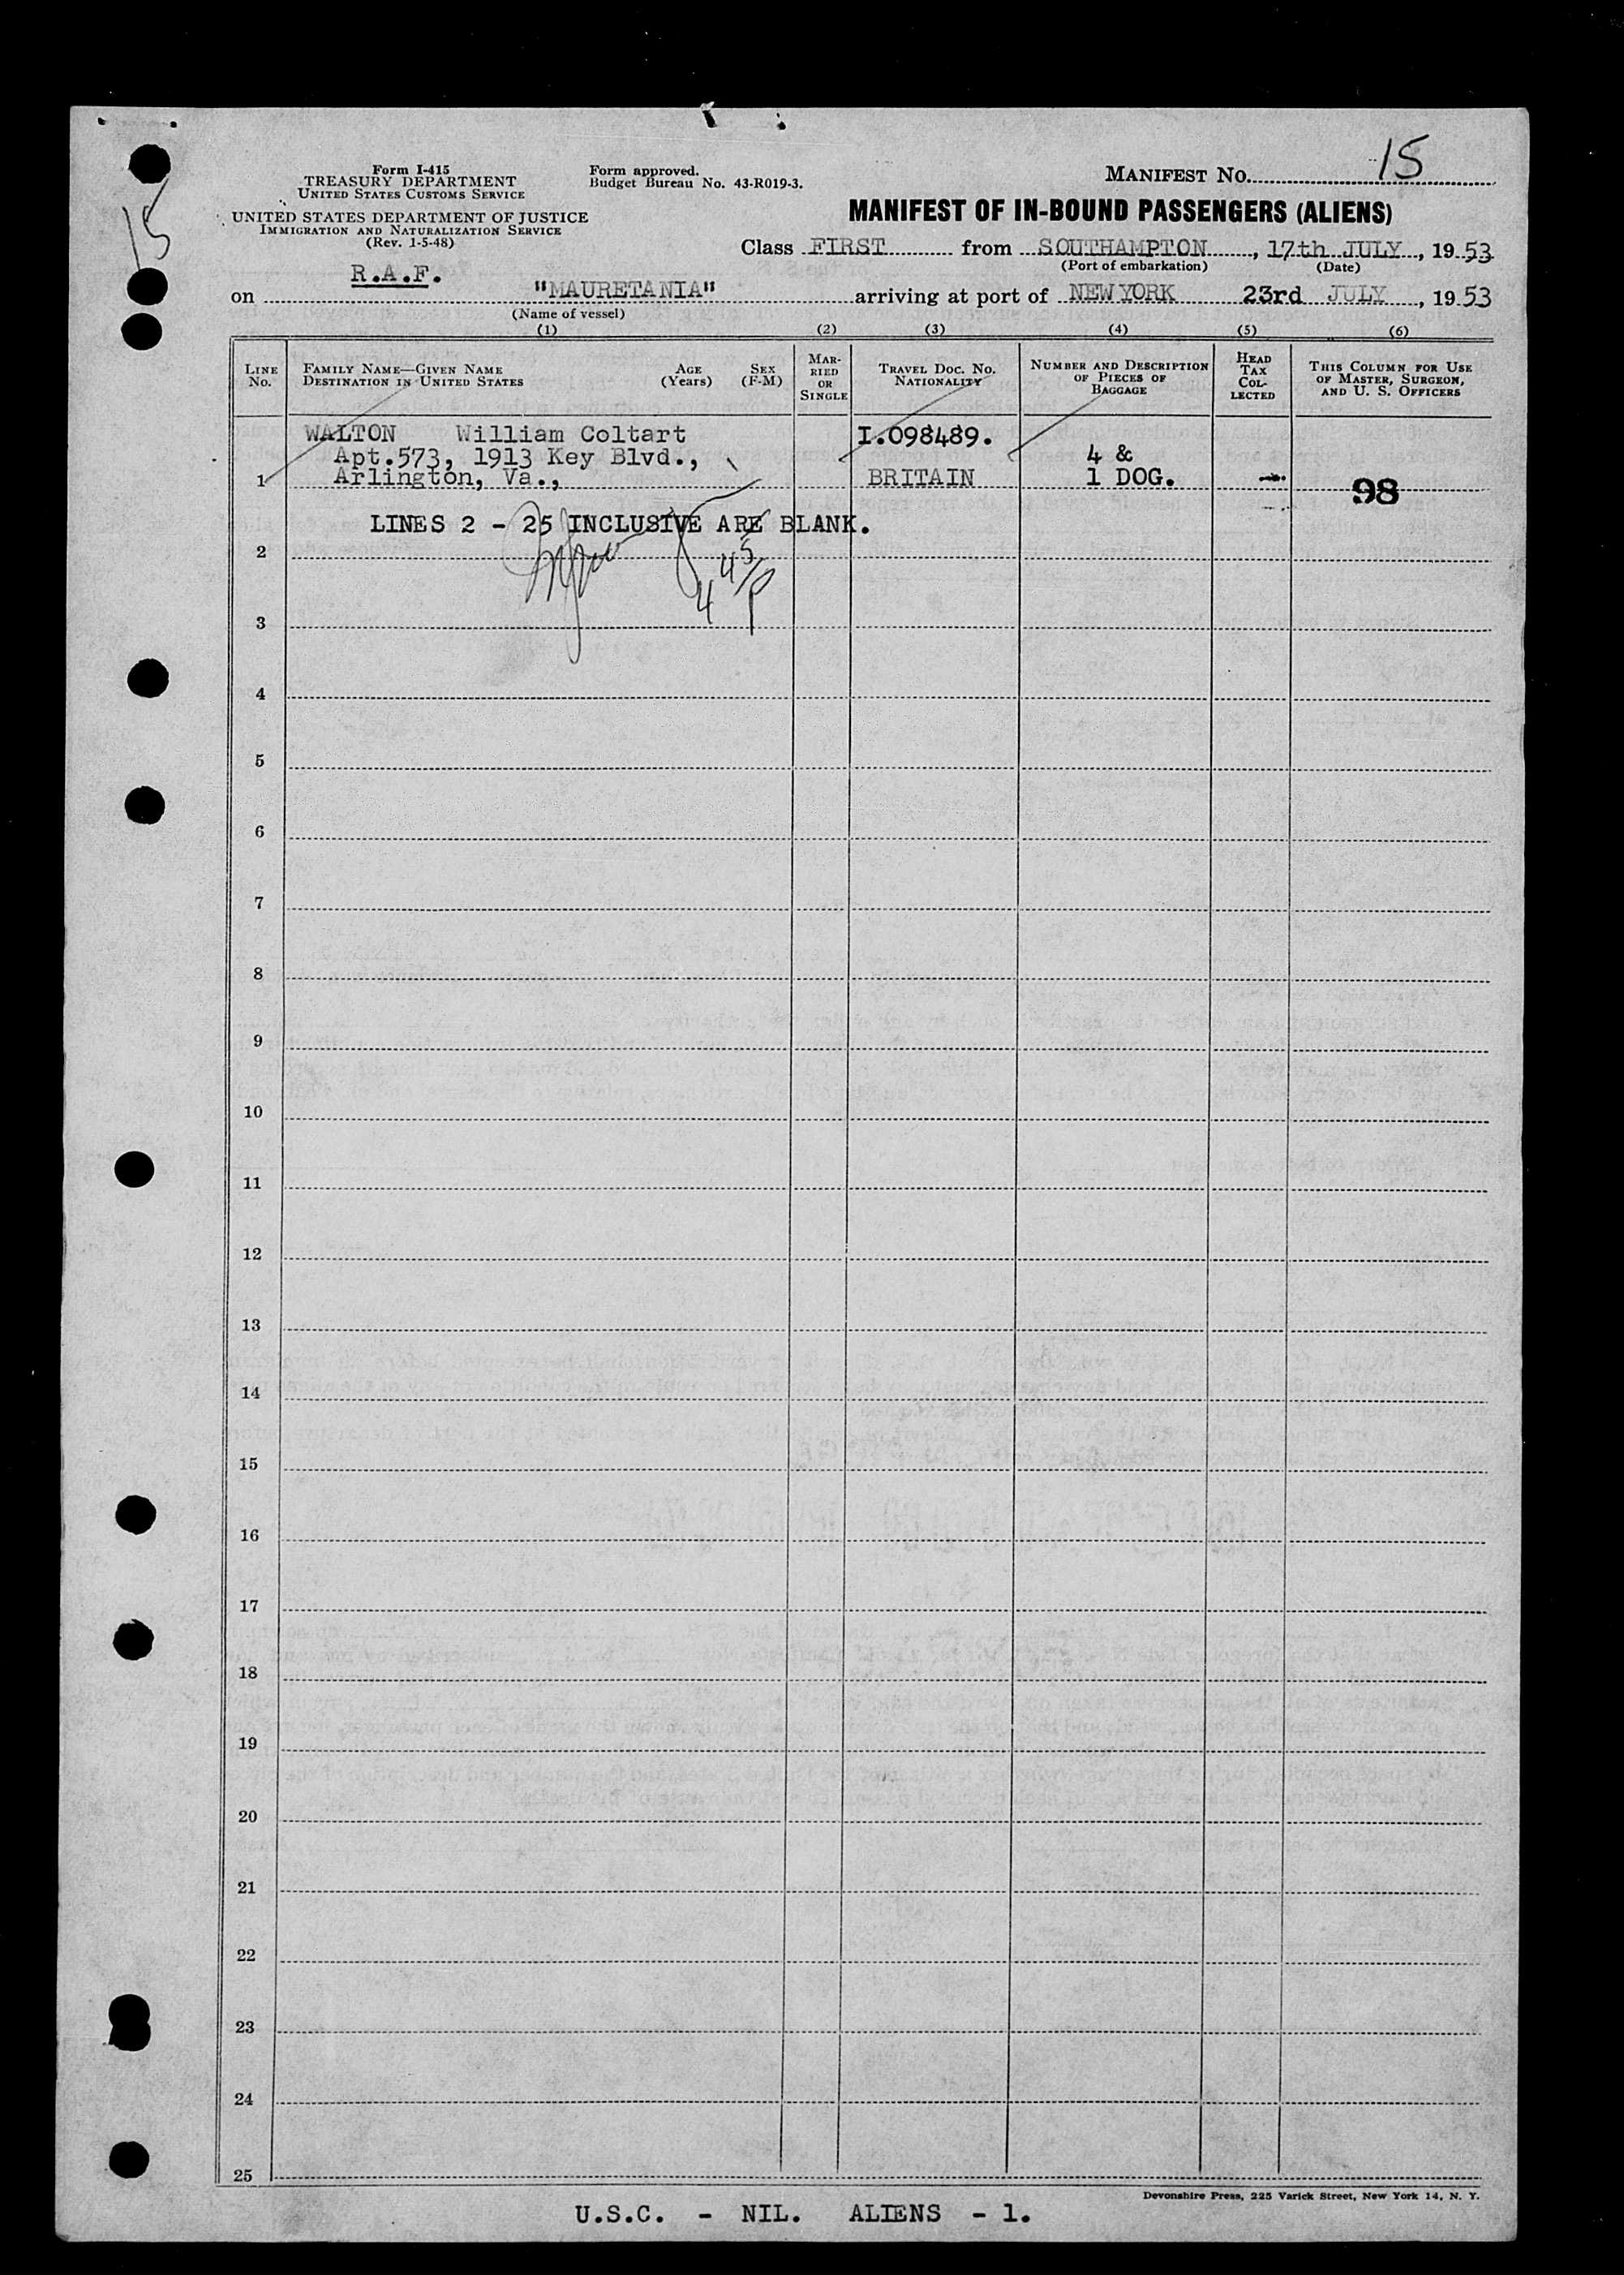 15
15
Form I-415
TREASURY DEPARTMENT
UNITED STATES CUSTOMS SERVICE
UNITED STATES DEPARTMENT OF JUSTICE
IMMIGRATION AND NATURALIZATION SERVICE
(Rev. 1-5-48)
Form approved.
Budget Bureau No. 43-R019-3.
MANIFEST No.
MANIFEST OF IN-BOUND PASSENGERS (ALIENS)
Class FIRST from SOUTHAMPTON, 17th JULY, 1953
(Port of embarkation) (Date)
R.A.F.
on "MAURETANIA" arriving at port of NEW YORK 23rd JULY, 1953
(Name of vessel)
(1) (2) (3) (4) (5) (6)
LINE No.
FAMILY NAME—GIVEN NAME
DESTINATION IN UNITED STATES
AGE (Years)
SEX (F-M)
MARRIED OR SINGLE
TRAVEL DOC. NO.
NATIONALITY
NUMBER AND DESCRIPTION OF PIECES OF BAGGAGE
HEAD TAX COLLECTED
THIS COLUMN FOR USE OF MASTER, SURGEON, AND U. S. OFFICERS
WALTON William Coltart I.098489.
Apt.573, 1913 Key Blvd., 4 &
1 Arlington, Va., BRITAIN 1 DOG. - 98
LINES 2 - 25 INCLUSIVE ARE BLANK.
2
4 45/P
3
4
5
6
7
8
9
10
11
12
13
14
15
16
17
18
19
20
21
22
23
24
25
Devonshire Press, 225 Varick Street, New York 14, N. Y.
U.S.C. - NIL. ALIENS - 1.